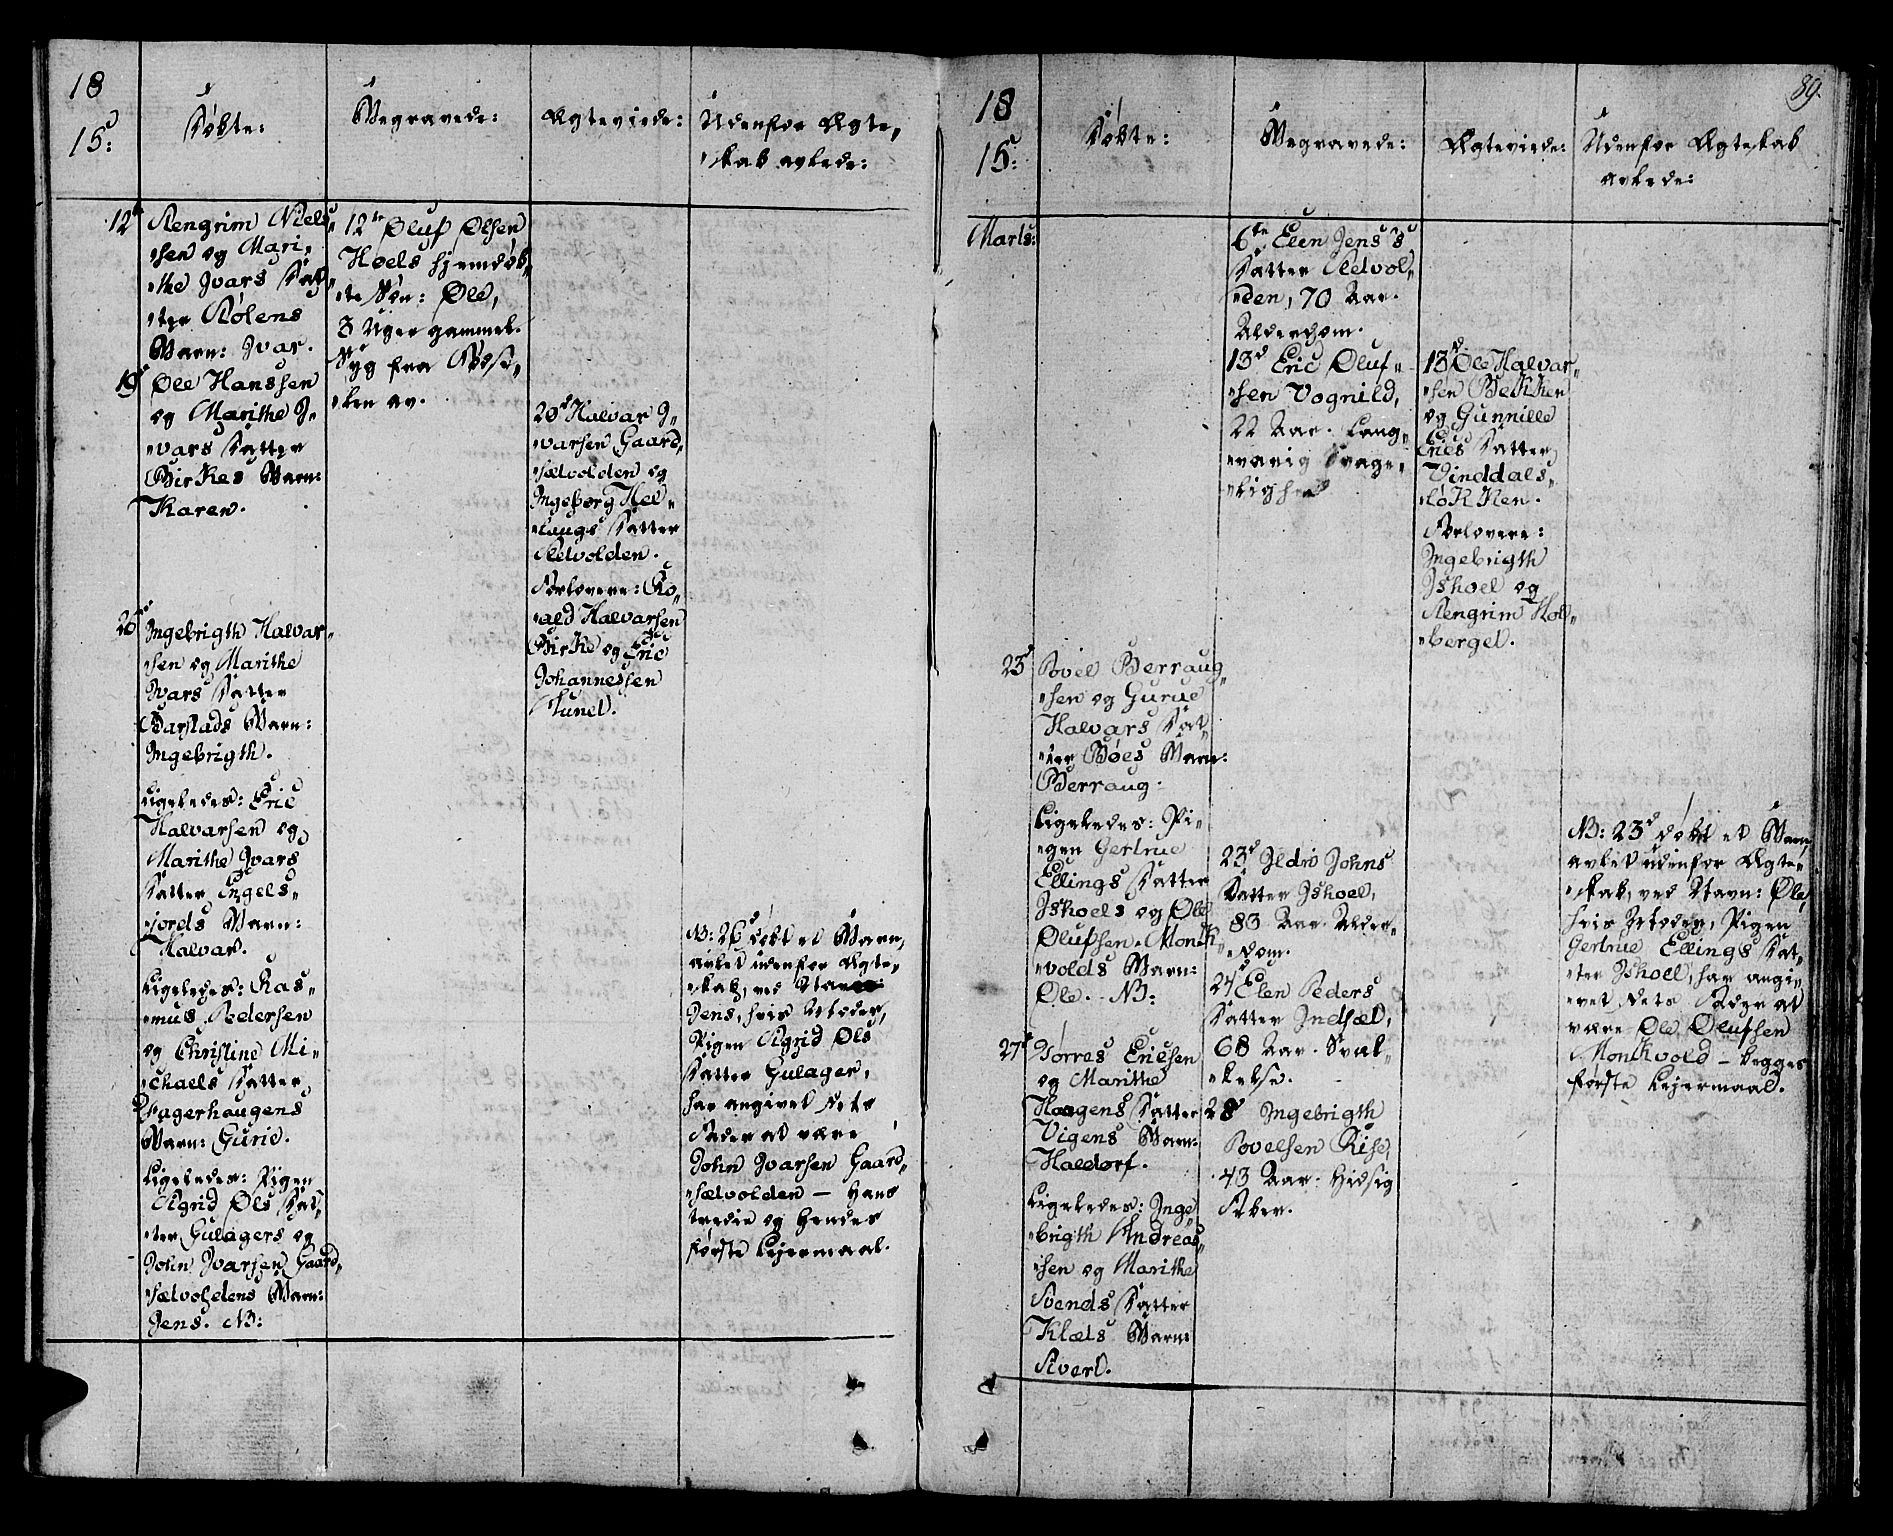 18
15:
Døbte:
Begravede:
Ægteviede:
Udenfor Ægte„
„skab avlede:
12te
Arngrim Niels„
„sen og Mari„
„the Ivars Dat„
„ter
Barn: Ivar.
19de Ole Hanssen
og Marithe I„
„vars Datter
Birkes Barn:
Karen.
26de
Ingebrigth Halvar„
„sen og Marithe
Ivars Datter
Barstads Barn:
Ingebrigth.
Ligeledes: Eric
Halvarsen og
Marithe Ivars
Datter Engels„
„jords Barn:
Halvar.
Ligeledes: Ras„
„mus Pedersen
og Christine Mi„
„chaels Datter
Fagerhaugens
Barn: Gurie.
Ligeledes: Pigen
Sigrid Ols Dat„
„ter Gulagers og
John Ivarsen Gaard„
„sætvoldens Barn:
Jens. NB:
12te Oluf Olsen
Hoels hjemdøb„
„te Søn: Ole,
3 Uger gammel.
Syg fra Fødse„
„len av.
20de Halvar I„
„varsen Gaard„
„sætvolden og
Ingeborg Hel„
„laugs Datter
Aelvolden.
Forlovere: Ro„
„ald Halvarsen
Birke og Eric
Johannessen
Lunel.
NB: 26de døbt et Barn,
avlet udenfor Ægte„
„skab, ved Navn:
Jens, hvis Moder,
Pigen Sigrid Ols
Datter Gulager,
har angivet dets
Fader at være
John Ivarsen Gaard„
„sætvolden — Hans
tredie og Hendes
første Lejermaal.
89.
18
15:
Døbte:
Begravede:
Ægteviede:
Udenfor Ægteskab
avlede:
Marts:
23de
Povel Berraug„
„sen og Gurue
Halvars Dat„
„ter Bøes Barn:
Berraug.
Ligeledes: Pi„
„gen Gertrue
Ellings Datter
Ishoels og Ole
Olufsen Monk„
„volds Barn:
Ole. NB:
27de Torres Ericsen
og Marithe
Haagens Datter
Vigens Barn:
Haldorf.
Ligeledes: Inge„
„brigth Andreas„
„sen og Marithe
Svends Datter
Klæts Barn:
Sivert.
6te Elen Jens's
Datter Aelvol„
„den, 70 Aar.
Alderdom.
13de Eric Oluf„
„sen Vognild,
22 Aar. Lang„
„varig Svage„
„lighed
23de Ildrid Johns
Datter Ishoel,
83 Aar. Alder„
„dom.
24de Elen Peders
Datter Indsæt,
68 Aar. Svul„
„telse.
28de Ingebrigth
Povelsen Rise,
43 Aar. Hidsig
Feber.
13de Ole Halvar„
„sen Bekken
og Gunnille
Erics Datter
Vinddals„
„løkken.
Forlovere:
Ingebrigth
Ishoel og
Arngrim Hol„
„berget.
NB: 23de døbt et Barn,
avlet udenfor Ægte„
„skab, ved Navn: Ole,
hvis Moder, Pigen
Gertrue Ellings Dat„
„ter Ishoel, har angi„
„vet dets Fader at
være Ole Olufsen
Monkvold — begges
første Lejermaal.